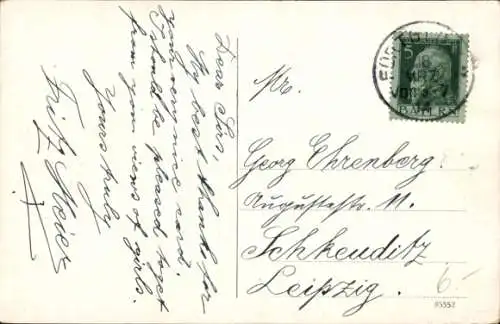 Dear Sirs,
My best thanks for
your very nice card.
I should be pleased to get
from you views of girls.
Yours truly
Fritz Meier
Hr.
Georg Ehrenberg.
Augustastr. 11.
Schkeuditz
Leipzig.
6.-
5
BAYERN